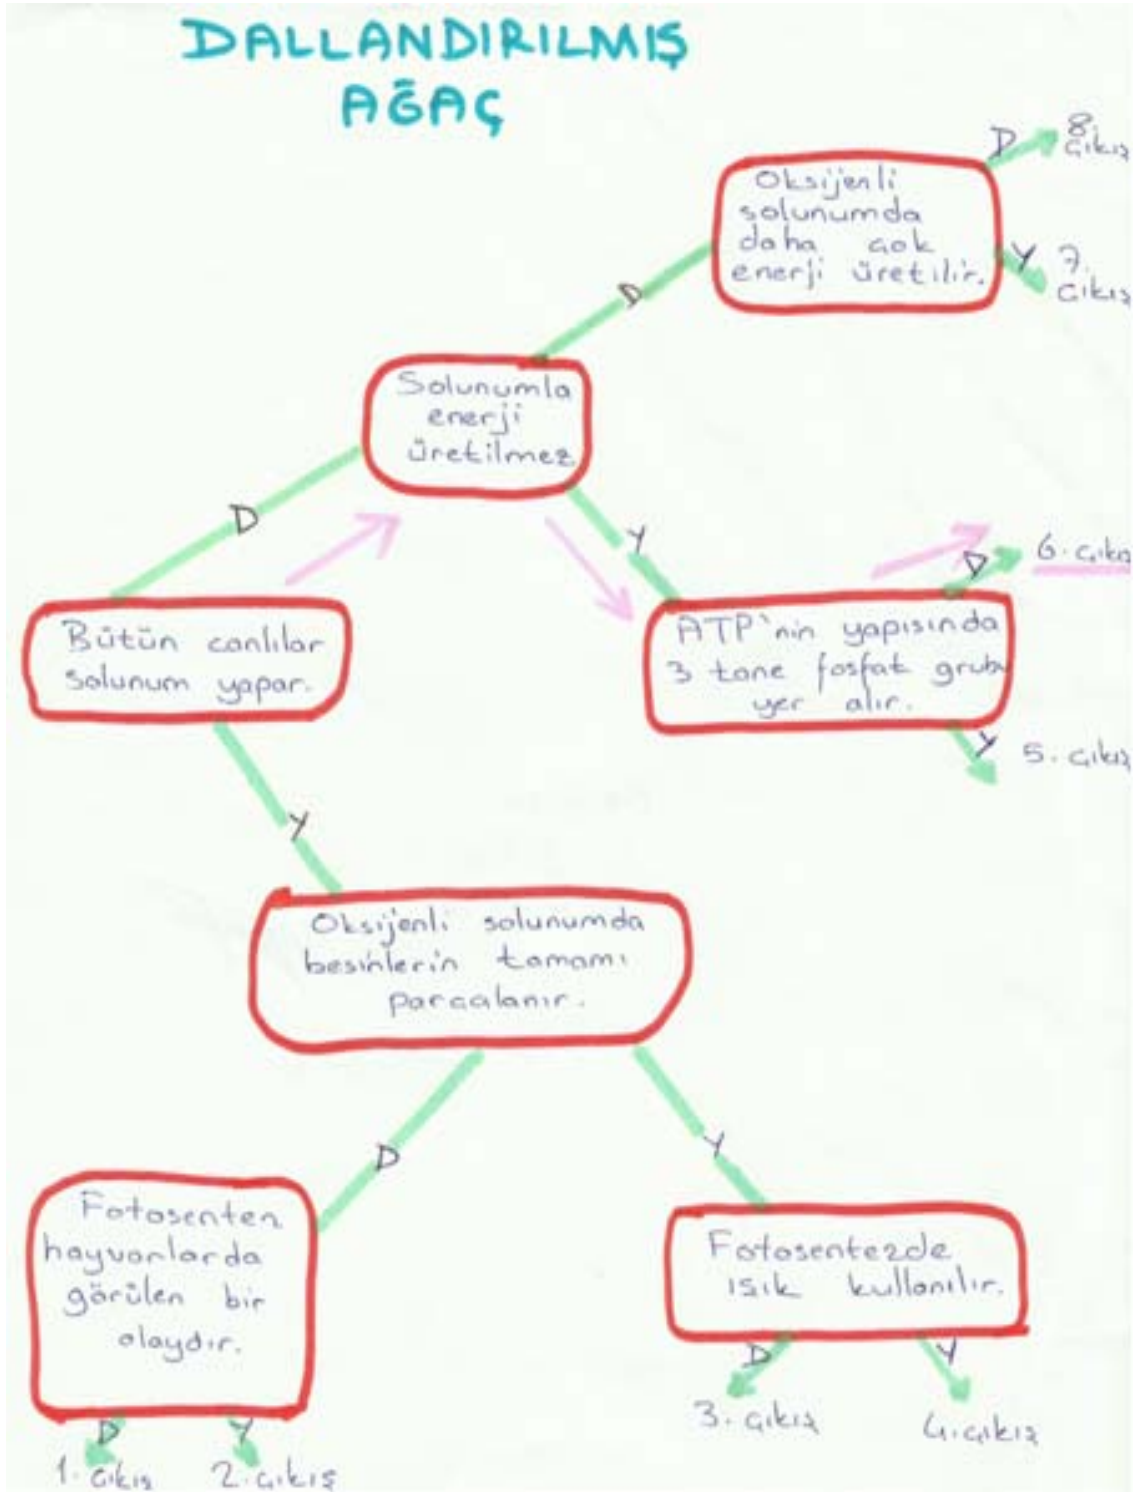 DALLANDIRILMIŞ
AĞAÇ
D
8.
çıkış
Oksijenli
solunumda
daha çok
enerji üretilir.
Y
7.
çıkış
D
Solunumla
enerji
üretilmez
D
Y
D
6. çıkış
Bütün canlılar
solunum yapar.
ATP'nin yapısında
3 tane fosfat grubu
yer alır.
Y
5. çıkış
Y
Oksijenli solunumda
besinlerin tamamı
parçalanır.
D
Y
Fotosentez
hayvanlarda
görülen bir
olaydır.
Fotosentezde
ışık kullanılır.
D
Y
3. çıkış
4. çıkış
D
Y
1. çıkış
2. çıkış